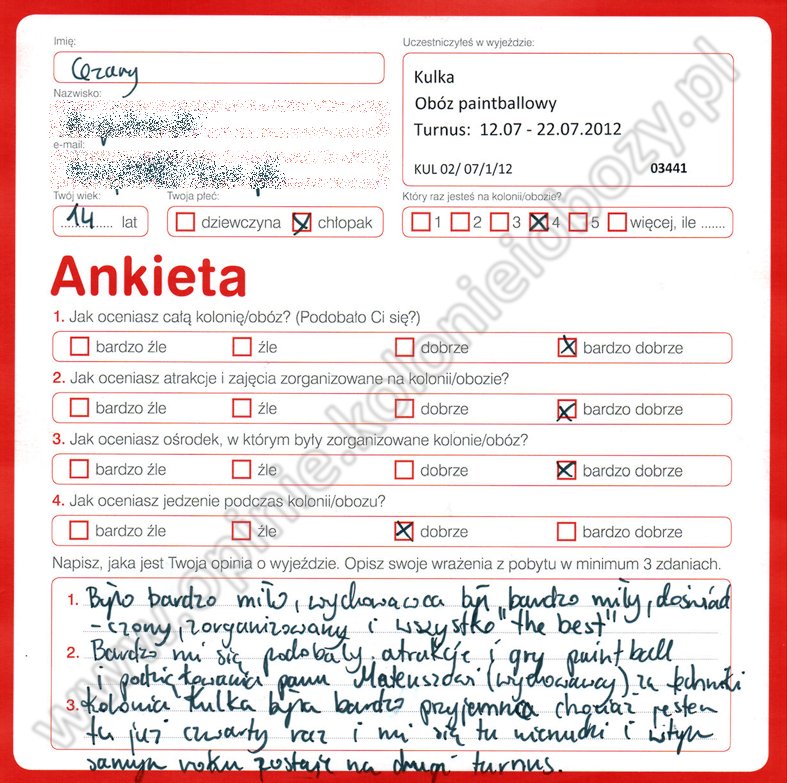 Imię:
Uczestniczyłeś w wyjeździe:
Cezary
Kulka
Nazwisko:
Obóz paintballowy
Turnus: 12.07 - 22.07.2012
e-mail:
KUL 02/ 07/1/12 03441
Twój wiek: Twoja płeć: Który raz jesteś na kolonii/obozie?
14 lat dziewczyna chłopak 1 2 3 4 5 więcej, ile .......
Ankieta
1. Jak oceniasz całą kolonię/obóz? (Podobało Ci się?)
bardzo źle źle dobrze bardzo dobrze
2. Jak oceniasz atrakcje i zajęcia zorganizowane na kolonii/obozie?
bardzo źle źle dobrze bardzo dobrze
3. Jak oceniasz ośrodek, w którym były zorganizowane kolonie/obóz?
bardzo źle źle dobrze bardzo dobrze
4. Jak oceniasz jedzenie podczas kolonii/obozu?
bardzo źle źle dobrze bardzo dobrze
Napisz, jaka jest Twoja opinia o wyjeździe. Opisz swoje wrażenia z pobytu w minimum 3 zdaniach.
1. Było bardzo miło, wychowawca był bardzo miły, doświad
-czony, zorganizowany i wszystko "the best"
2. Bardzo mi się podobały atrakcje i gry paintball
i podziękowania panu Mateuszowi (wychowawcy) za
3. kolonia Kulka była bardzo przyjemna chociaż jestem
tu już czwarty raz i mi się tu nienudzi i w tym
samym roku zostaję na drugi turnus.
www.opinie.kolonieiobozy.pl